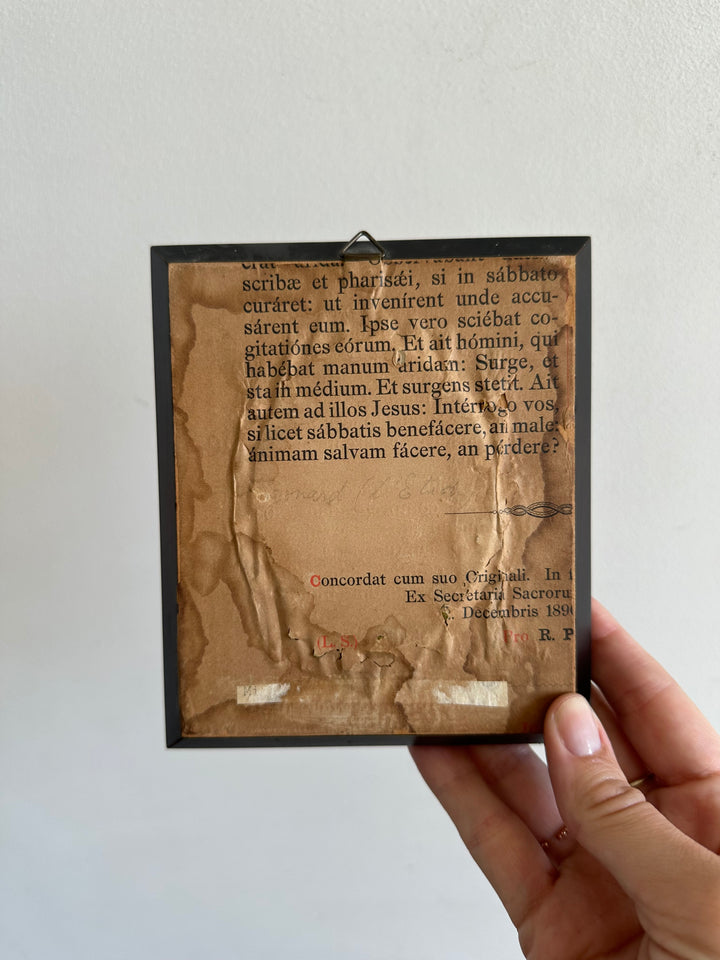 scribæ et pharisǽi, si in sábbato
curáret: ut invenírent unde accu-
sárent eum. Ipse vero sciébat co-
gitatiónes eórum. Et ait hómini, qui
habébat manum aridam: Surge, et
sta in médium. Et surgens stetit. Ait
autem ad illos Jesus: Intérrogo vos,
si licet sábbatis benefácere, an male:
ánimam salvam fácere, an pérdere?
Concordat cum suo Originali. In
Ex Secretaria Sacroru
Decembris 189
(L. S.)
Pro R. P